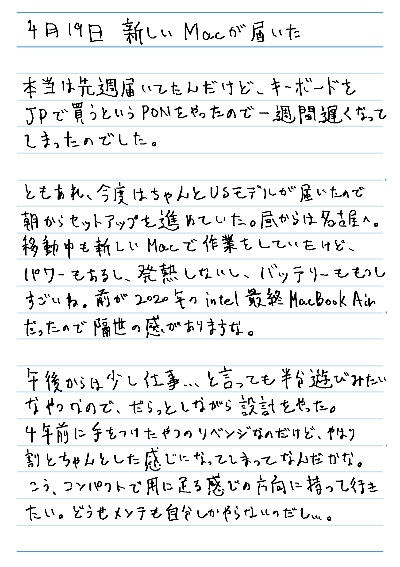 4月19日 新しいMacが届いた
本当は先週届いてたんだけど、キーボードを
JPで買うというPONをやったので一週間遅くなって
しまったのでした。
ともあれ、今度はちゃんとUSモデルが届いたので
朝からセットアップを進めていた。昼からは名古屋へ。
移動中も新しいMacで作業をしていたけど、
パワーもあるし、発熱しないし、バッテリーももつし
すごいね。前が2020年のintel最終MacBook Air
だったので隔世の感がありますな。
午後からは少し仕事…と言っても半分遊びみたい
なやつなので、だらっとしながら設計をやった。
4年前に手をつけたやつのリベンジなのだけど、やはり
割とちゃんとした感じになってしまってなんだかな。
こう、コンパクトで用に足る感じの方向に持って行き
たい。どうもメンテも自分しかやらないのだし…。